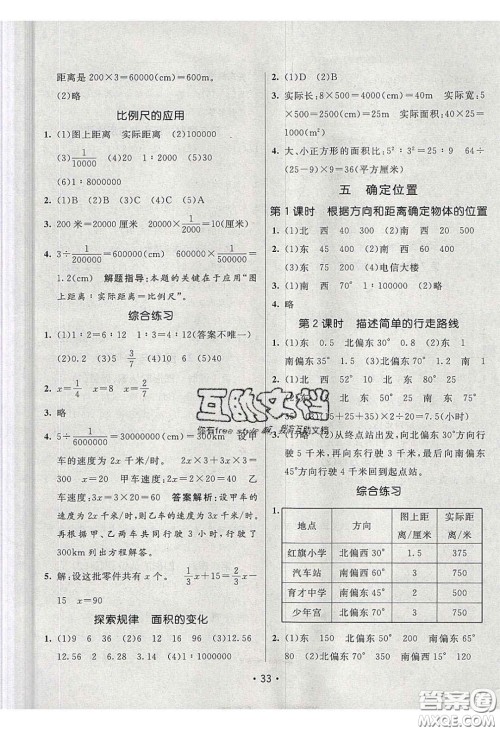 距离是200×3=60000(cm)=600m。
(2)略
比例尺的应用
1. (1)图上距离 实际距离 (2)100000
(3)1/10000 (4)20 (5)40
(6)1∶8000000
2. (1)B (2)B (3)C (4)A (5)A
3. 200米=20000厘米 20000×1/2000=10(厘米)
4. 3÷1/200000=600000(cm) 600000×1/500000=
1.2(cm) 解题指导:本题的关键在于应用“图
上距离∶实际距离=比例尺”。
综合练习
1. (1)1∶2=6∶12 1∶3=4∶12(答案不唯一)
(2)0.2 (3)5 3/7 (4)10 (5)15
2. x=1/4 x=8 x=2/7
3. 略
4. 5÷1/6000000=30000000(cm)=300km 设甲
车的速度为2x千米/时。 2x×3+3x×3=
300 x=20 甲车速度:2x=2×20=40 乙
车速度:3x=3×20=60 答案解析:设甲车的
速度为2x千米/时,则乙车的速度为3x千米/时。
再根据甲、乙两车共同行驶3小时,可行驶了
300km列出方程解答。
5. 解:设这批零件共有x个。 1/3x+15=2/3x-
15 x=90
探索规律 面积的变化
1. (1)9 6 36 (2)6 12 16 96 (3)12.56
12.56 2 6.28 4 (4)1∶1000000
2. (1)D (2)B
3. 实际长:8×500=4000(cm)=40m 实际宽:5
×500=2500(cm)=25m 实际面积:40×25=
1000(m²)
4. 大、小正方形的面积比:5²∶3²=25∶9 64÷
(25-9)×9=36(平方厘米)
五 确定位置
第1课时 根据方向和距离确定物体的位置
1. (1)北 西 40 300 (2)南 西 70 400
2. (1)东 45 400 (2)南 西 60 400
(3)东 75 200 (4)电信大楼
3. (1)南 西 70° 1∶100000 (2)略
4. 略
第2课时 描述简单的行走路线
1. (1)东 0.5 北偏东30° 1 (2)东 1
南偏东35° 1.5 北偏东70° 1.2
2. (1)北 西 52° 10 北偏东 80° 8
(2)南 西 68° 25 南偏东 52° 10
(3)(5+25+35)×2÷20=7.5(小时)
3. (1)略 (2)从终点站出发,向北偏西60°方向行
驶5千米,再向东行驶3千米,最后向南偏东
45°方向行驶4千米回到起点站。
综合练习
1.
地点 方向 图上距离/厘米 实际距离/米
红旗小学 北偏西30° 1.5 375
汽车站 南偏西60° 3 750
育才中学 南偏西30° 2 500
少年宫 北偏东60° 3 750
2. (1)东 150 北偏东50° 200 南偏东65°
80 (2)北偏西65° 120 南偏西50° 350
互助文档
· 33 ·
答案圈
MXQE.COM